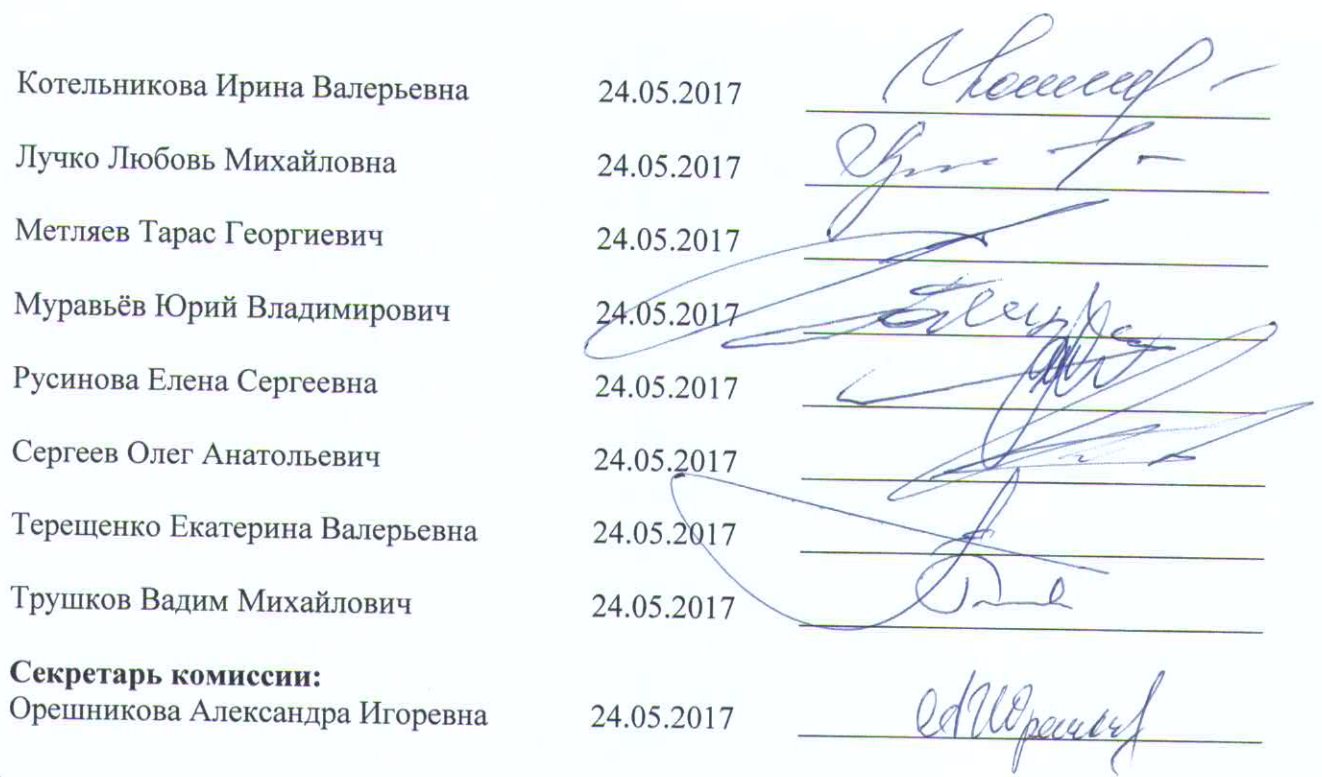 Котельникова Ирина Валерьевна 24.05.2017
Лучко Любовь Михайловна 24.05.2017
Метляев Тарас Георгиевич 24.05.2017
Муравьёв Юрий Владимирович 24.05.2017
Русинова Елена Сергеевна 24.05.2017
Сергеев Олег Анатольевич 24.05.2017
Терещенко Екатерина Валерьевна 24.05.2017
Трушков Вадим Михайлович 24.05.2017
Секретарь комиссии:
Орешникова Александра Игоревна 24.05.2017